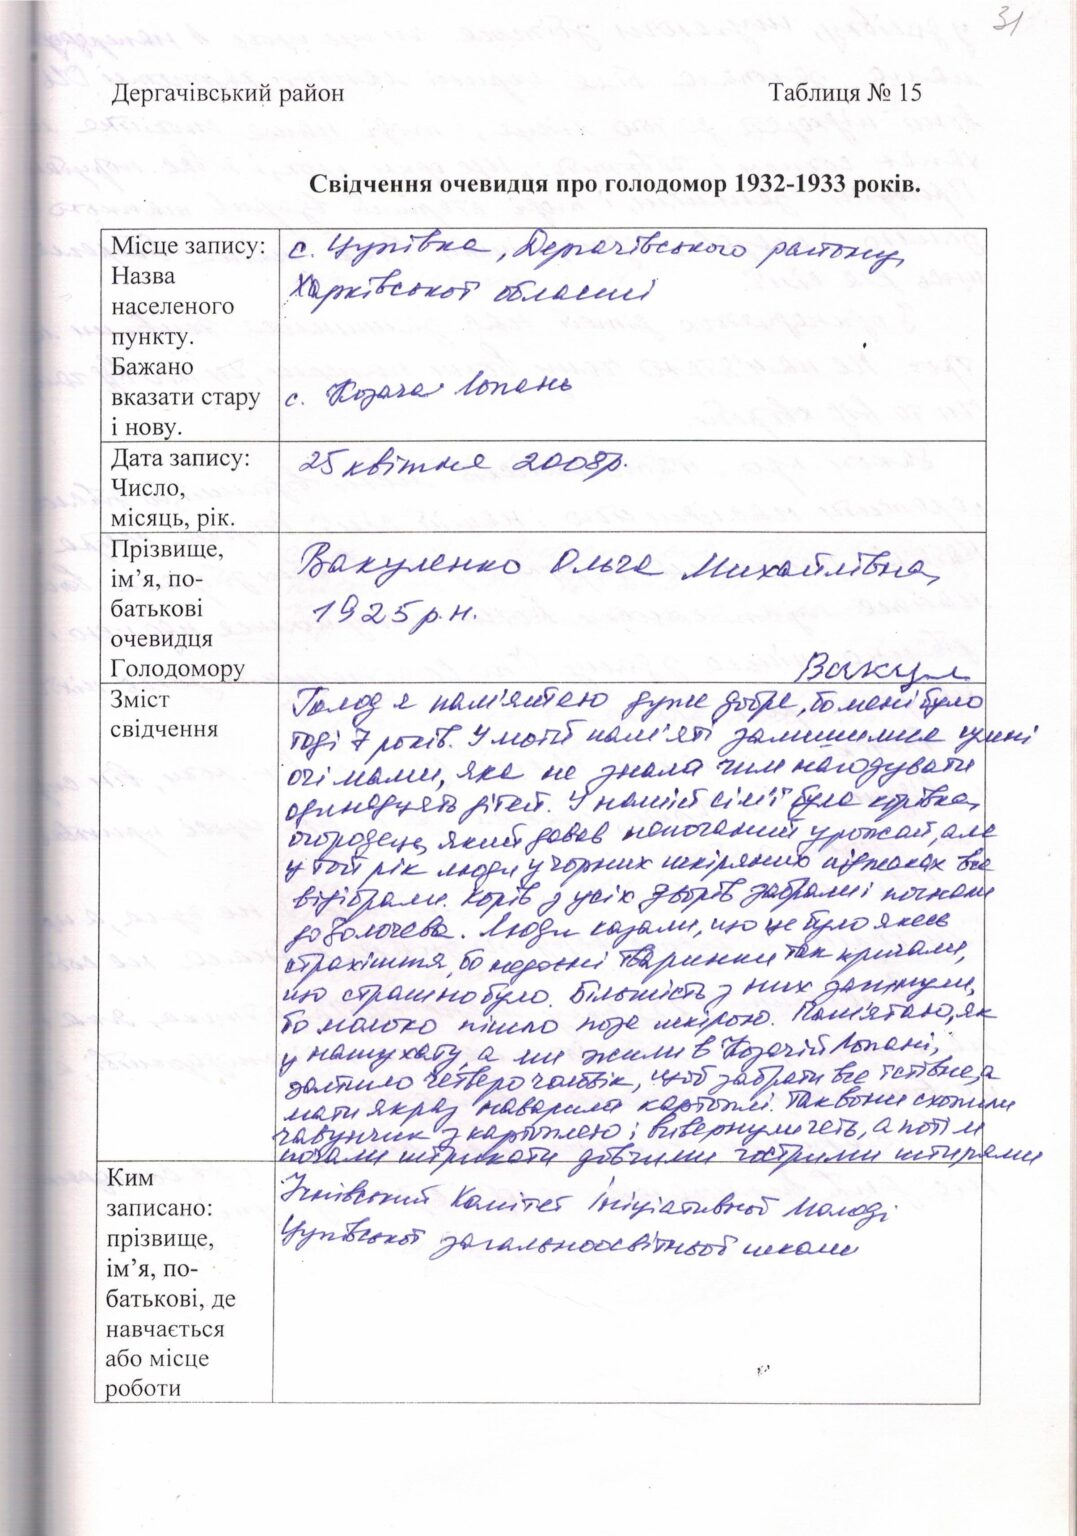 31
Дергачівський район
Таблиця № 15
Свідчення очевидця про голодомор 1932-1933 років.
Місце запису:
Назва
населеного
пункту.
Бажано
вказати стару
і нову.
с. Цупівка, Дергачівського району,
Харківської області
с. Козача Лопань
Дата запису:
Число,
місяць, рік.
25 квітня 2008р.
Прізвище,
ім’я, по-
батькові
очевидця
Голодомору
Вакуленко Ольга Михайлівна,
1925 р.н.
Вакул
Зміст
свідчення
Голод я пам'ятаю дуже добре, бо мені було
тоді 7 років. У моїй пам'яті залишилися сумні
очі мами, яка не знала чим нагодувати
одинадцять дітей. У нашій сім'ї була корівка,
огородець, який давав непоганий урожай, але
у той рік люди у чорних шкіряних піджаках все
відібрали. Корів з усіх дворів забрали і погнали
до Золочева. Люди казали, що це було якесь
страхіття, бо недоєні тваринки так кричали,
що страшно було. Більшість з них загинули,
бо молоко пішло поза шкірою. Пам'ятаю, як
у нашу хату, а ми жили в Козачій Лопані,
зайшло четверо чоловік, щоб забрати все їстівне, а
мати якраз наварила картоплі. Так вони схопили
чавунчик з картоплею і вивернули геть, а потім
почали штрикати довгими гострими штирями
Ким
записано:
прізвище,
ім’я, по-
батькові, де
навчається
або місце
роботи
Учнівський Комітет Ініціативної Молоді
Цупівської загальноосвітньої школи